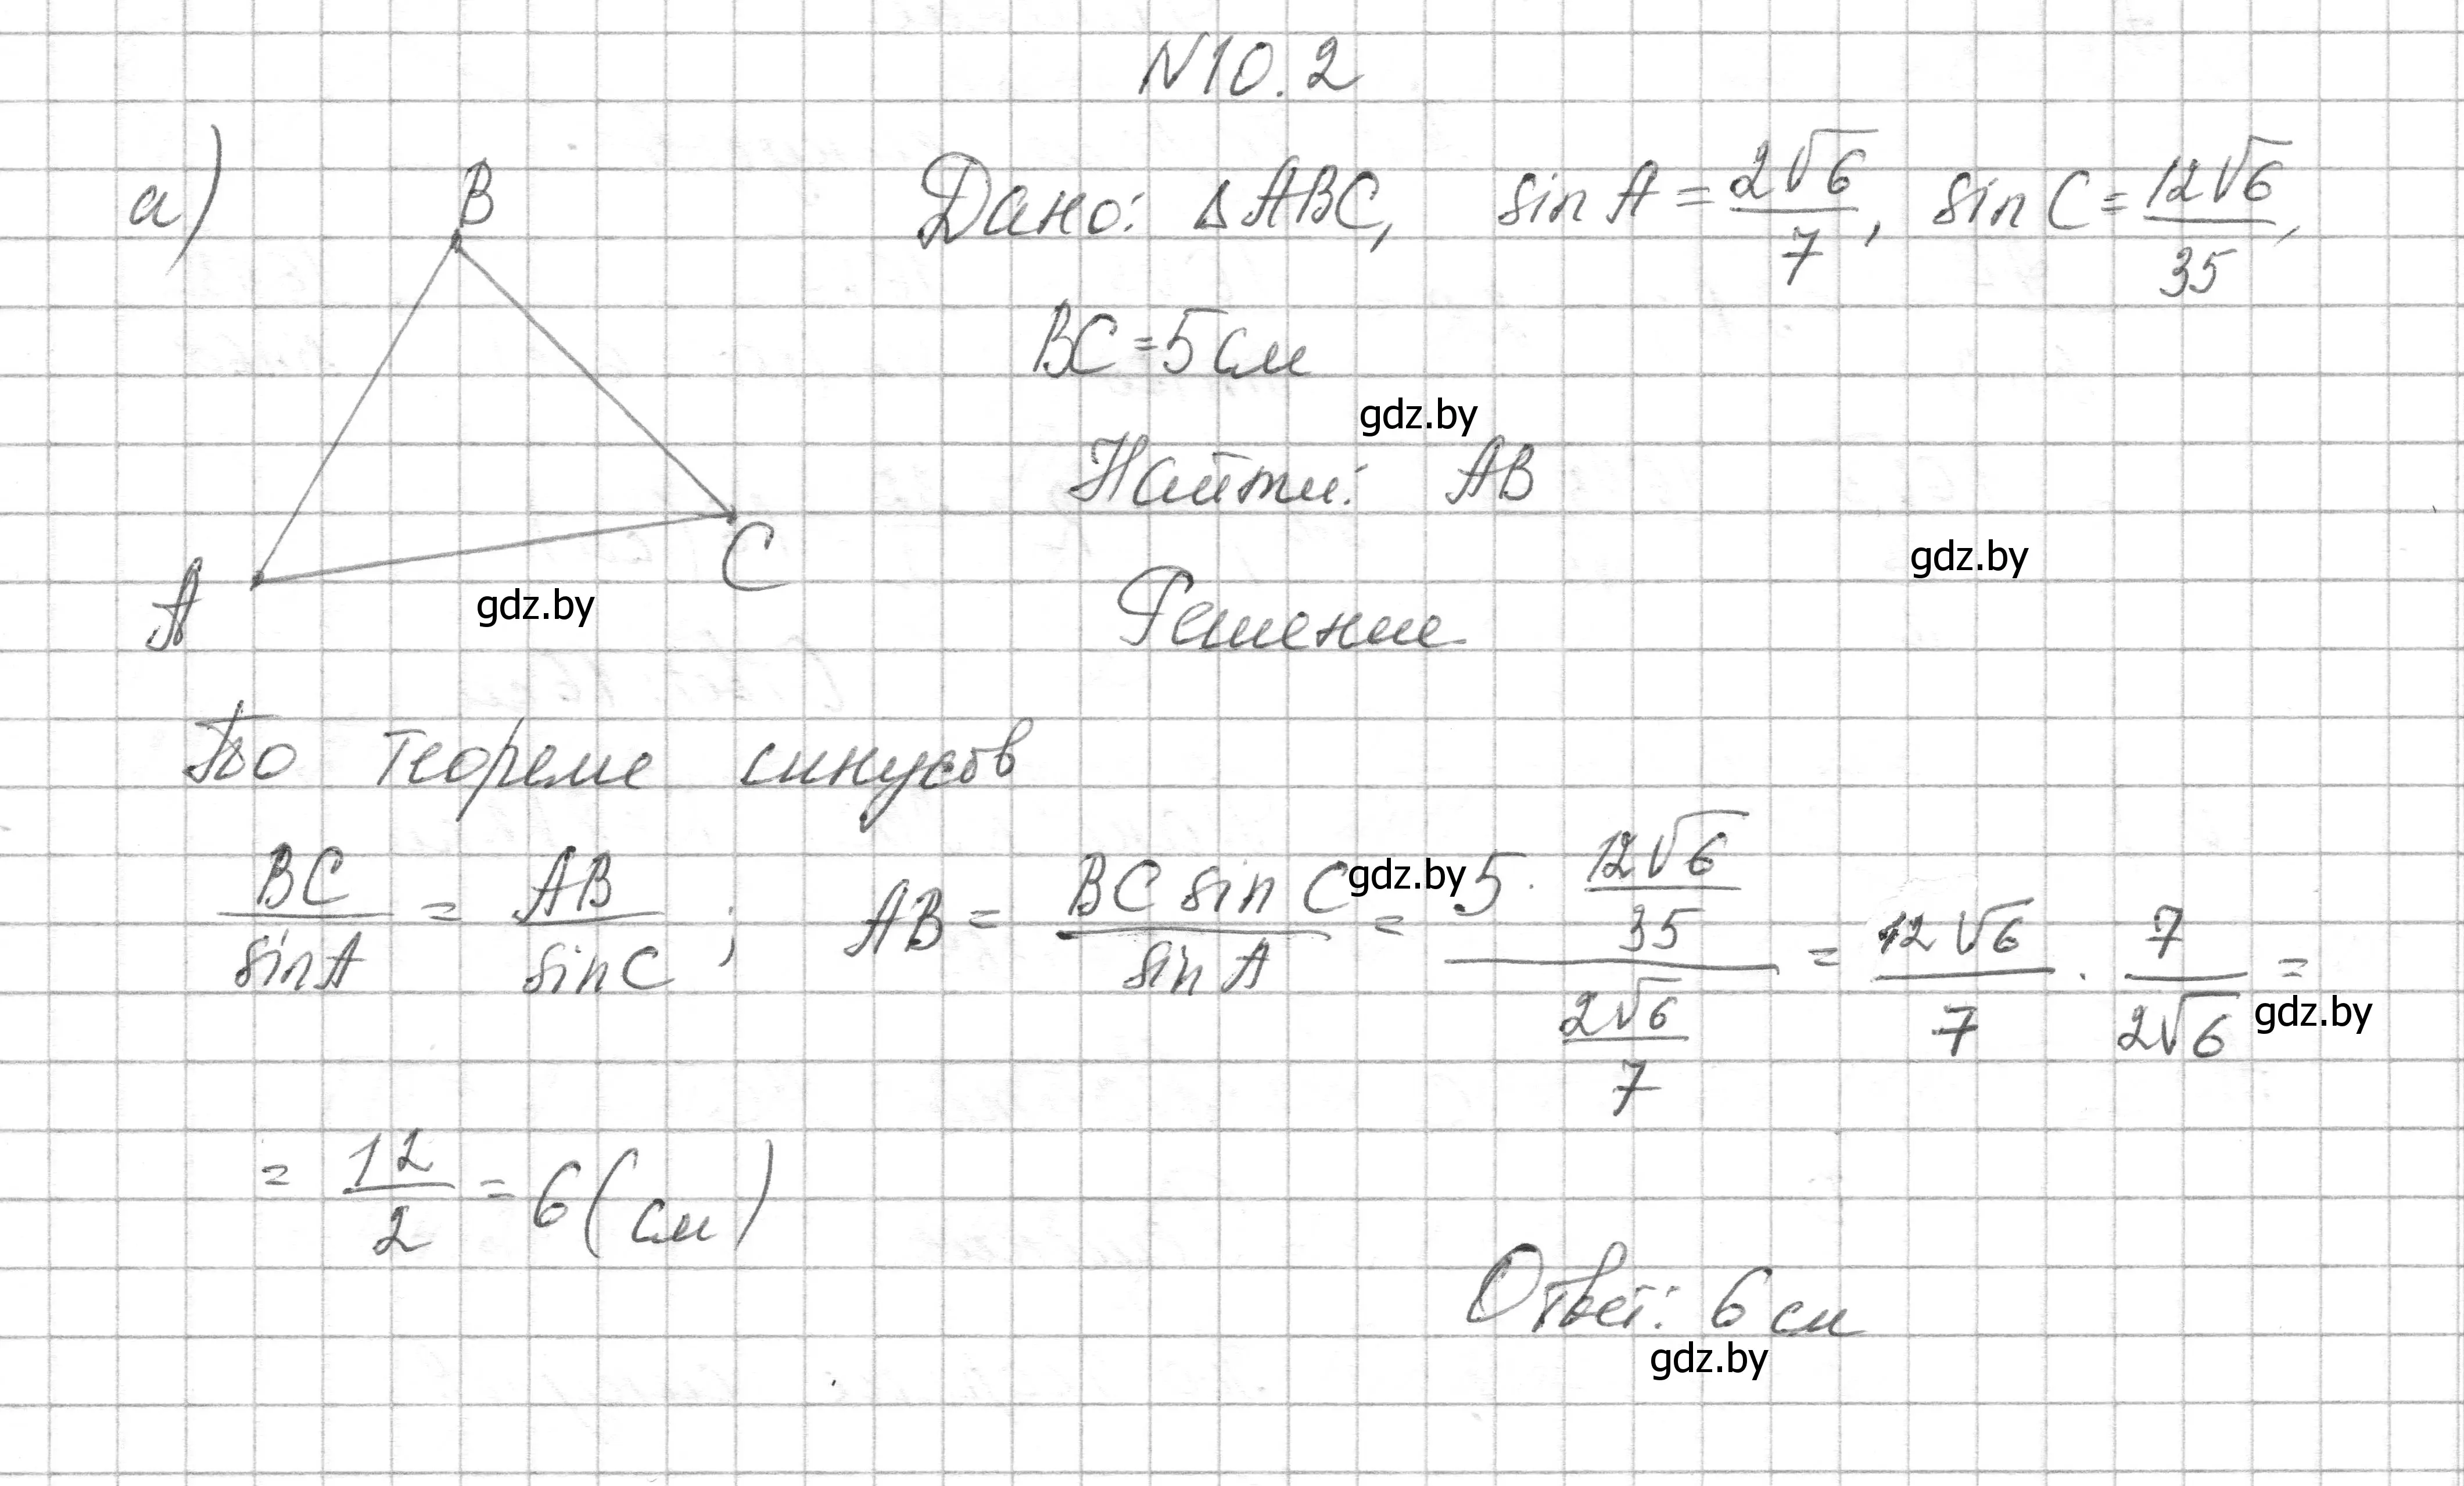 N10.2
а)
B
A
C
Дано: △ABC, sin A = 2√6/7, sin C = 12√6/35,
BC = 5 см
gdz.by
Найти: AB
gdz.by
gdz.by
Решение
По теореме синусов
BC/sin A = AB/sin C ; AB = BC sin C/sin A = (5 · 12√6/35)/(2√6/7) = 12√6/7 · 7/2√6 =
gdz.by
gdz.by
= 12/2 = 6 (см)
Ответ: 6 см
gdz.by